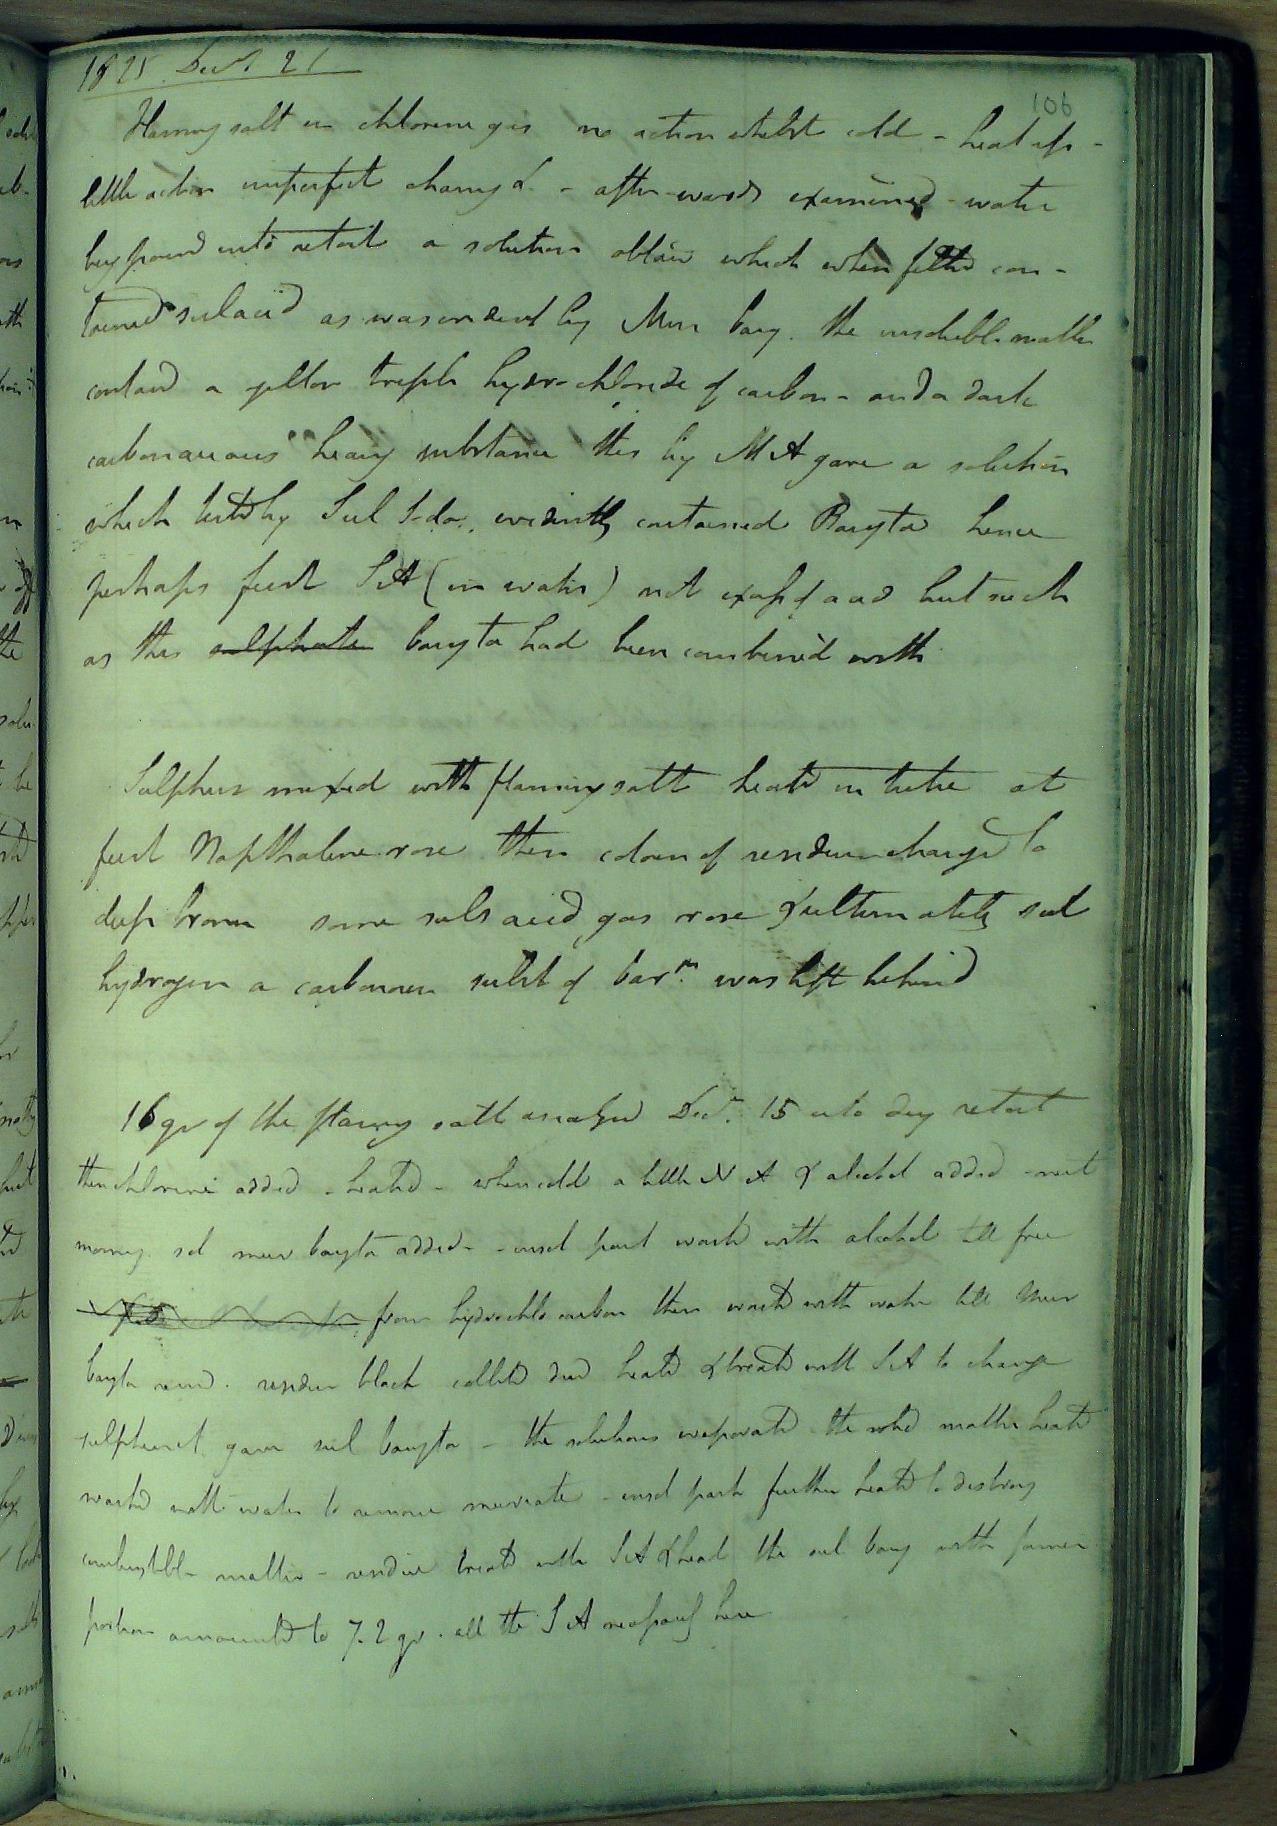 1825 Decr. 21
106
Flaming salt in chlorine gas no action whilst cold - heat app -
little action imperfect charring &. - afterwards examined - water
being poured into retort a solution obtain which when filtd con-
tained sul acid as was evident by Mur bary. the insoluble matter
contand a yellow triple hydrochloride of carbon - and a dark
carbonaceous heavy substance this by M A gave a solution
which testd by Sul Soda, evidently contained Baryta hence
perhaps first S A (in water) not exp of acid but such
as this sulphate baryta had been combined with
Sulphur mixed with flaming salt heatd in tube at
first Napthaline rose then colour of residuum changed to
deep brown some sul acid gas rose & ultimately sul
hydrogen a carbonous sulst of barm. was left behind
16 gr of the flaming salt analyzed Decr. 15 into dry retort
then chlorine added - heatd - when cold a little N A & alcohol added - next
morng. sol mur baryta added - - insol part washd with alcohol till free
from hydrochlo carbon then washd with water till Mur
baryta remd. residue black collectd dried heatd & treatd with S A to change
sulphuret gave sul baryta - the solutions evaporatd the solid matter heatd
washd with water to remove muriate - insol part further heatd to destroy
combustible matter - residue treatd with S A & heat the sul bary with former
portion amountd to 7.2 gr. all the S A here